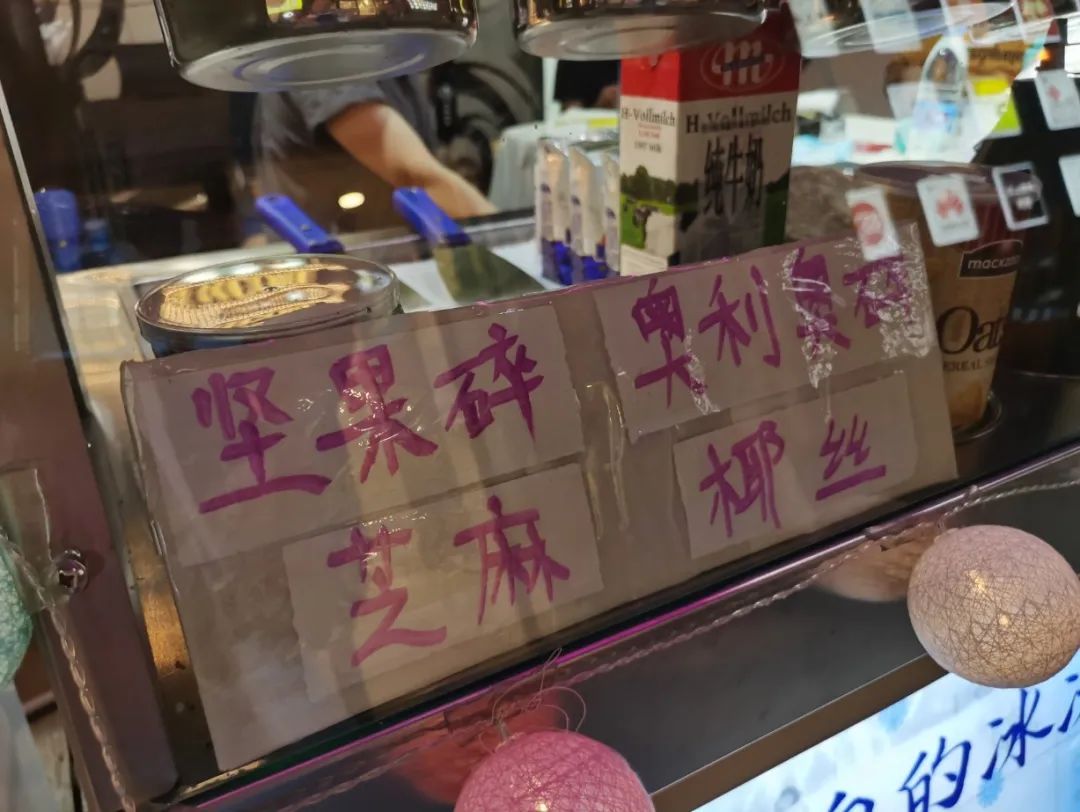 H-Vollmilch
H-Vollmilch
纯牛奶
坚果碎
奥利奥碎
芝麻
椰丝
的冰